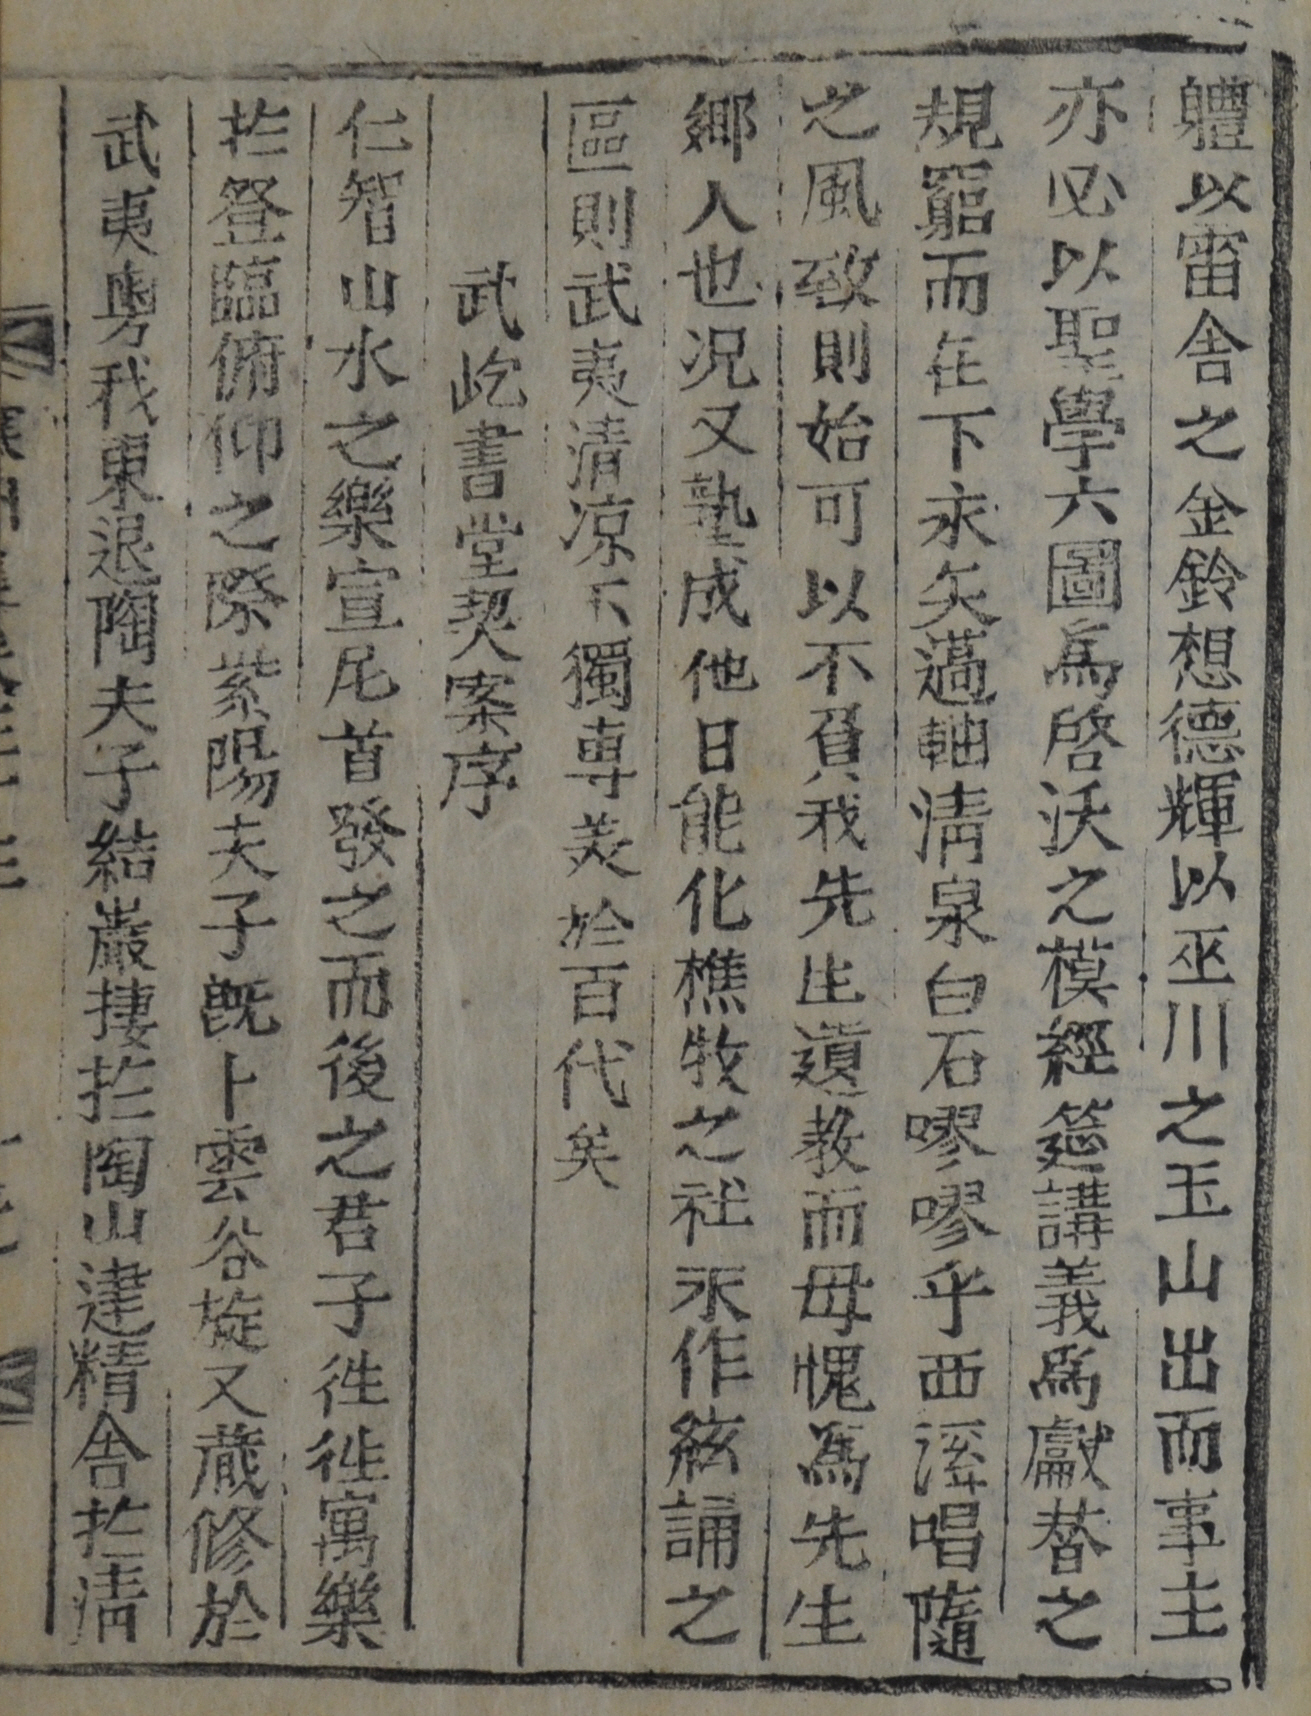 軆以宙舎之金鈴想德輝以巫川之玉山出而事主
亦必以聖學六圖爲啓沃之模經筵講義爲獻替之
規窮而在下永矢薖軸淸泉白石嘐嘐乎西溪唱隨
之風致則始可以不負我先生遺教而毋愧爲先生
鄕人也况又塾成他日能化樵牧之社永作絃誦之
區則武夷清凉不獨專美於百代矣
武屹書堂契案序
仁智山水之樂宣尼首發之而後之君子徃徃寓樂
扵登臨俯仰之際紫陽夫子旣卜雲谷旋又藏修於
武夷粤我東退陶夫子結巖捿扵陶山建精舍扵淸